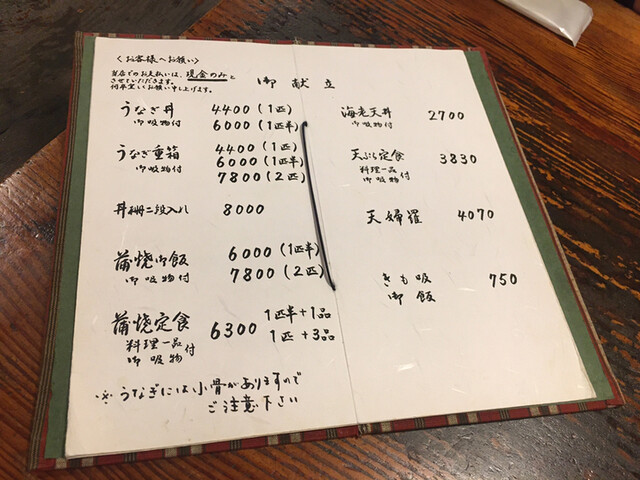 〈お客様へお願い〉
当店でのお支払いは、現金のみと
させていただきます。
何卒宜しくお願い申し上げます。
御献立
うなぎ丼 4400(1匹)
御吸物付 6000(1匹半)
うなぎ重箱 4400(1匹)
御吸物付 6000(1匹半)
7800(2匹)
丼柵二段入れ 8000
蒲焼御飯 6000(1匹半)
御吸物付 7800(2匹)
蒲焼定食 6300 1匹半+1品
料理一品付 1匹+3品
御吸物
※うなぎには小骨がありますので
ご注意下さい
海老天丼 2700
御吸物付
天ぷら定食 3830
料理一品付
御吸物
天婦羅 4070
きも吸 750
御飯